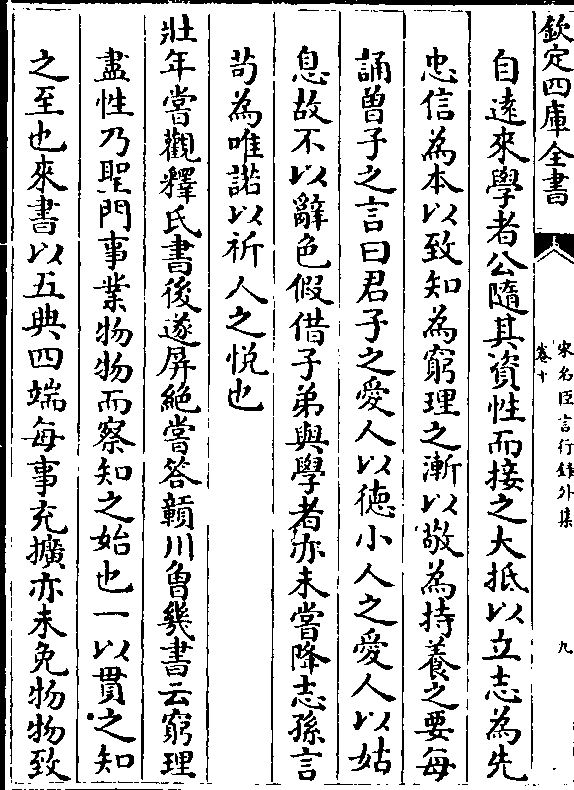 欽定四庫全書
宋名臣言行錄外集
卷十
九
自遠來學者公隨其資性而接之大抵以立志為先
忠信為本以致知為窮理之漸以敬為持養之要每
誦曾子之言曰君子之愛人以德小人之愛人以姑
息故不以辭色假借子弟與學者亦未嘗降志孫言
苟為唯諾以祈人之悅也
壯年嘗觀釋氏書後遂屏絶嘗答贛川曾幾書云窮理
盡性乃聖門事業物物而察知之始也一以貫之知
之至也來書以五典四端每事充擴亦未免物物致